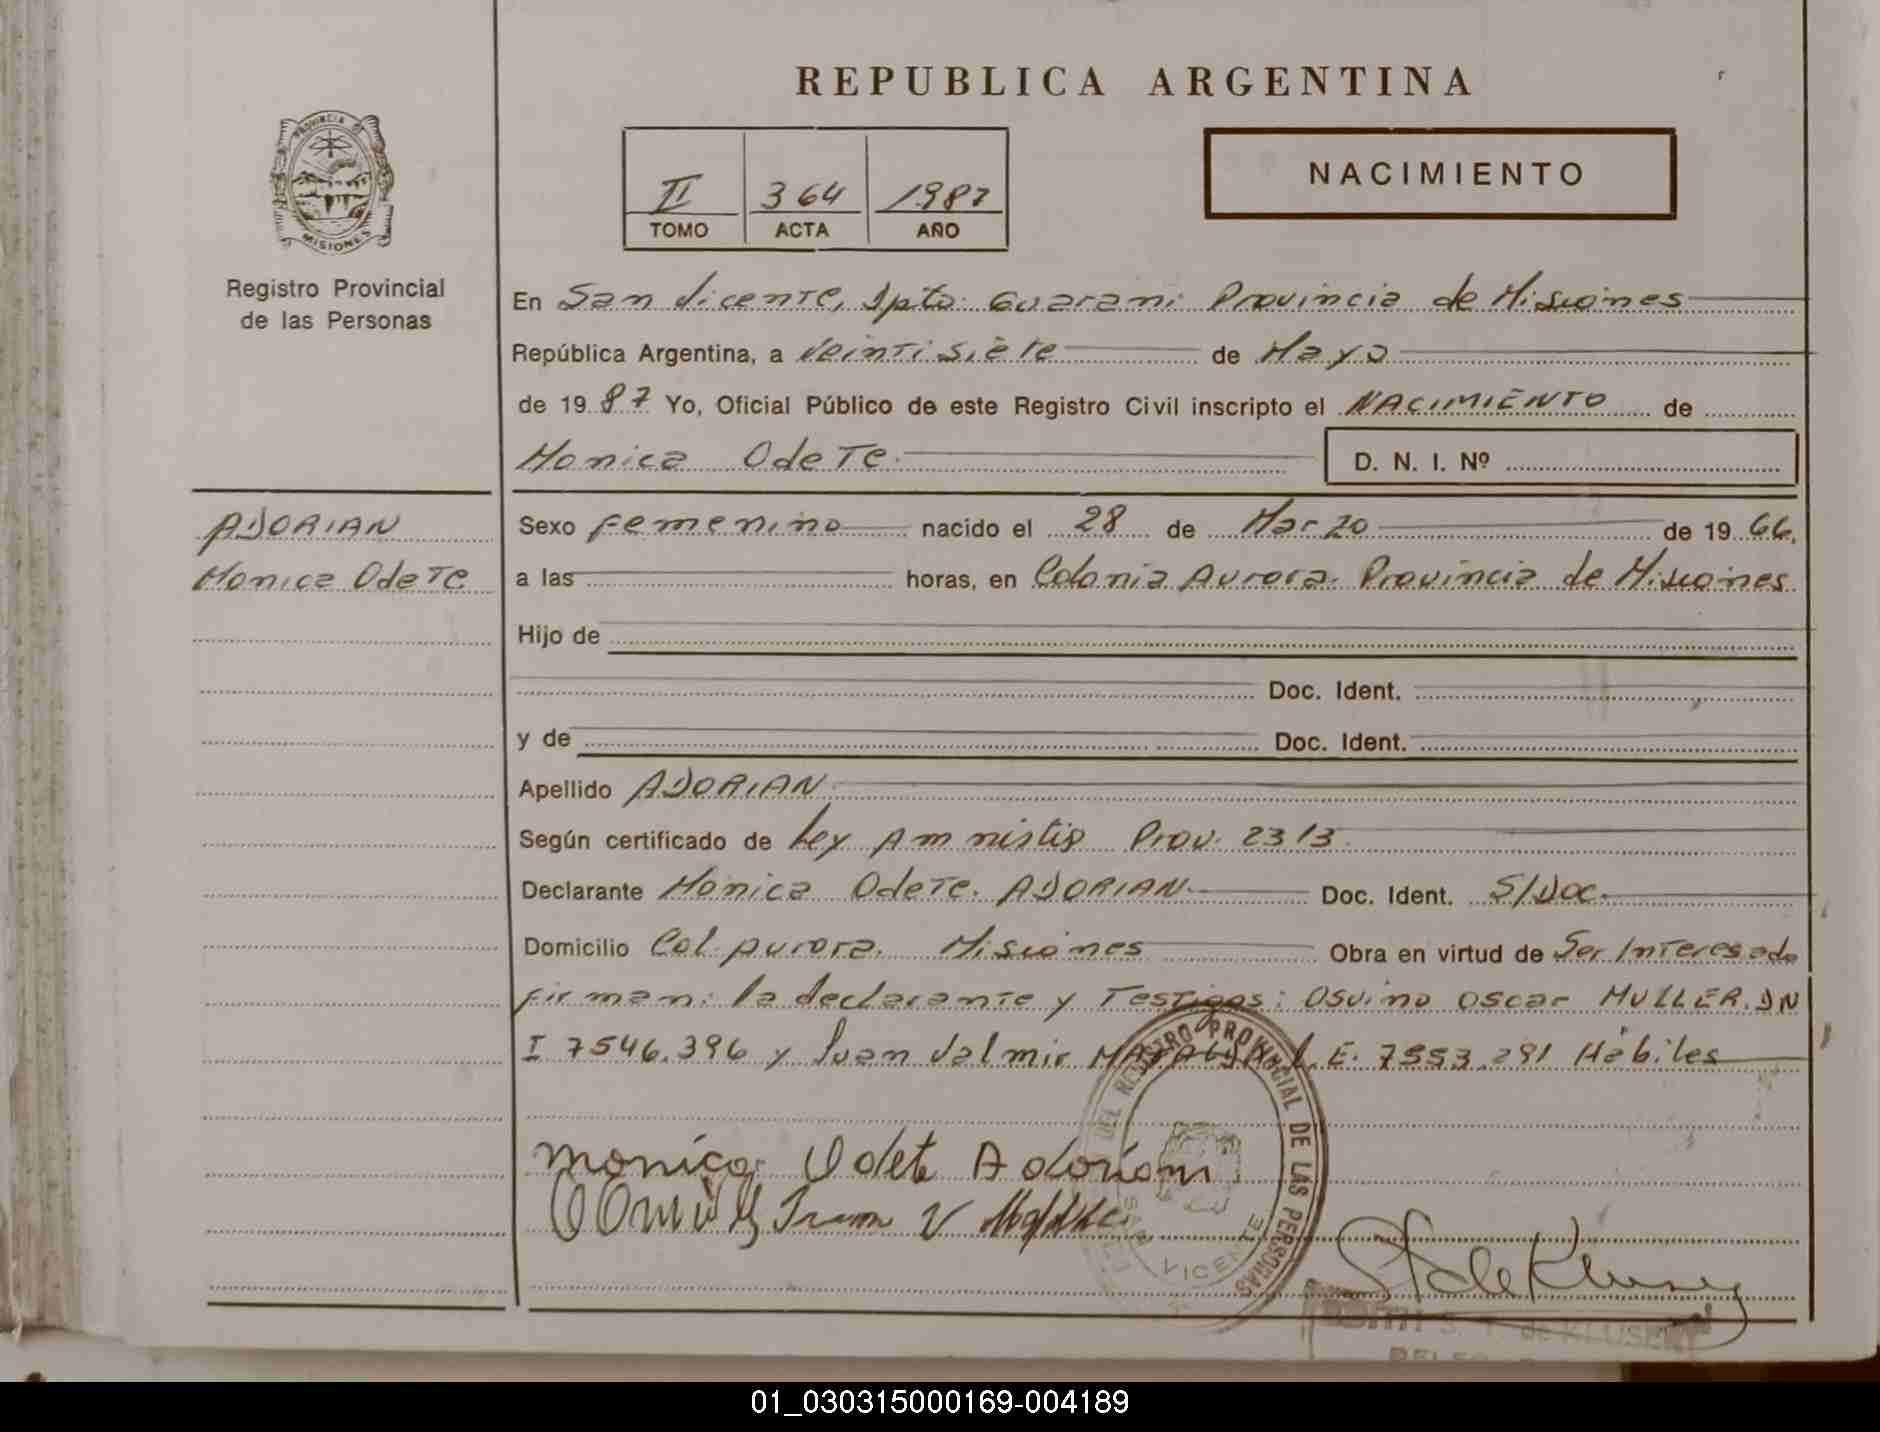 REPUBLICA ARGENTINA
PROVINCIA DE MISIONES
Registro Provincial
de las Personas
II 364 1987
TOMO ACTA AÑO
NACIMIENTO
En San Vicente, Dpto. Guarani Provincia de Misiones
República Argentina, a Veintisiete de Mayo
de 1987 Yo, Oficial Público de este Registro Civil inscripto el NACIMIENTO de
Monica Odete
D. N. I. Nº
ADORIAN
Monica Odete
Sexo Femenino nacido el 28 de Marzo de 1966,
a las horas, en Colonia Aurora. Provincia de Misiones
Hijo de
Doc. Ident.
y de Doc. Ident.
Apellido ADORIAN
Según certificado de Ley Amnistia Prov. 2313
Declarante Monica Odete. ADORIAN Doc. Ident. S/Doc.
Domicilio Col. Aurora. Misiones Obra en virtud de Ser Interesada
firman: la declarante y Testigos: Osvino Oscar MULLER. DN
I 7546.396 y Juan Valmir L.E. 7553.291 Hábiles
DEL REGISTRO PROVINCIAL DE LAS PERSONAS
SAN VICENTE
Monica Odete Adorian
S. T. de KLUSENER
01_030315000169-004189